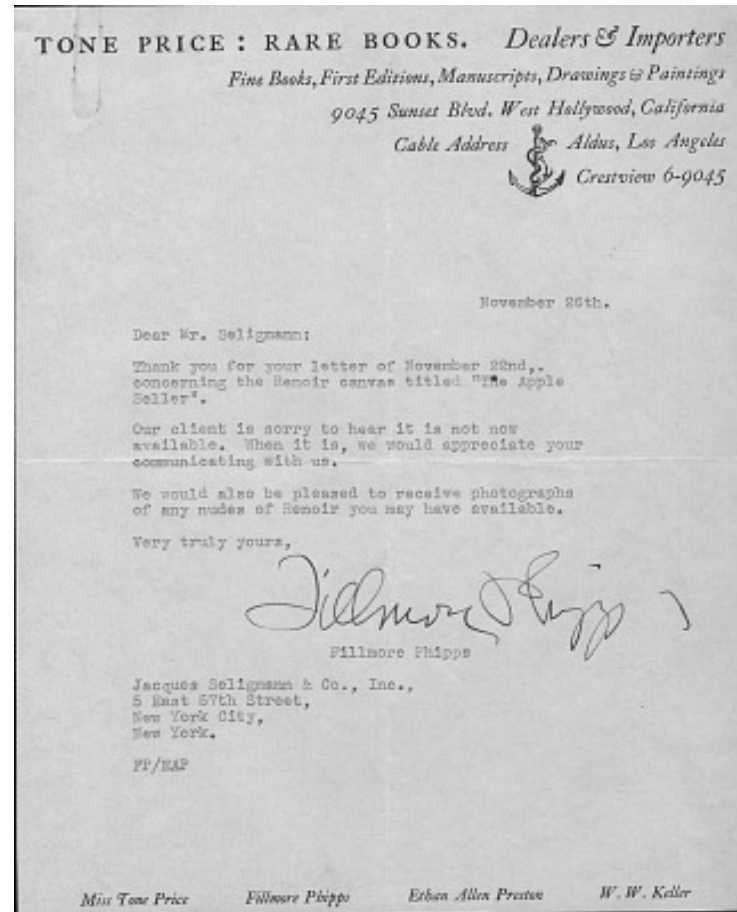 TONE PRICE : RARE BOOKS. Dealers & Importers
Fine Books, First Editions, Manuscripts, Drawings & Paintings
9045 Sunset Blvd. West Hollywood, California
Cable Address Aldus, Los Angeles
Crestview 6-9045
November 26th.
Dear Mr. Seligmann:
Thank you for your letter of November 22nd,.
concerning the Renoir canvas titled "The Apple
Seller".
Our client is sorry to hear it is not now
available. When it is, we would appreciate your
communicating with us.
We would also be pleased to receive photographs
of any nudes of Renoir you may have available.
Very truly yours,
Fillmore Phipps
Fillmore Phipps
Jacques Seligmann & Co., Inc.,
5 East 57th Street,
New York City,
New York.
FP/EAP
Miss Tone Price Fillmore Phipps Ethan Allen Preston W. W. Keller